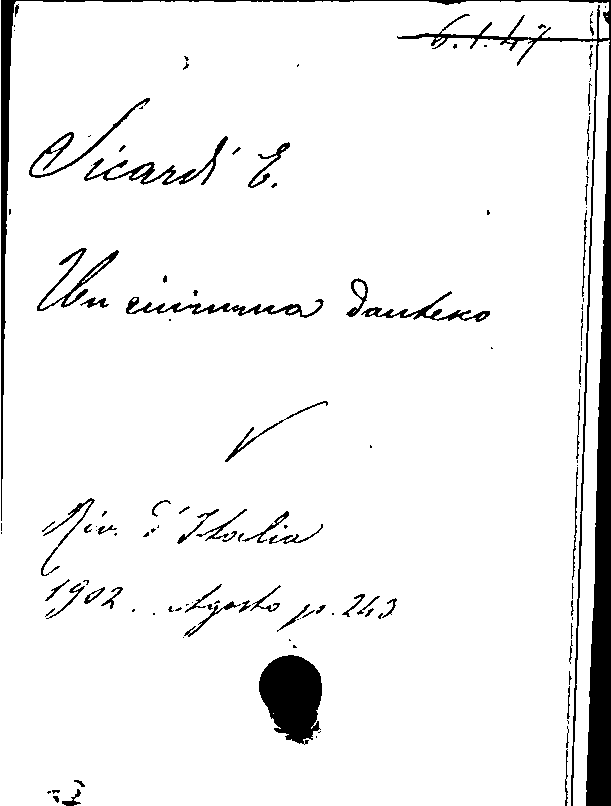 6.1.47
Sicardi E.
Un enimma dantesco
Riv. d'Italia
1902. Agosto p. 243